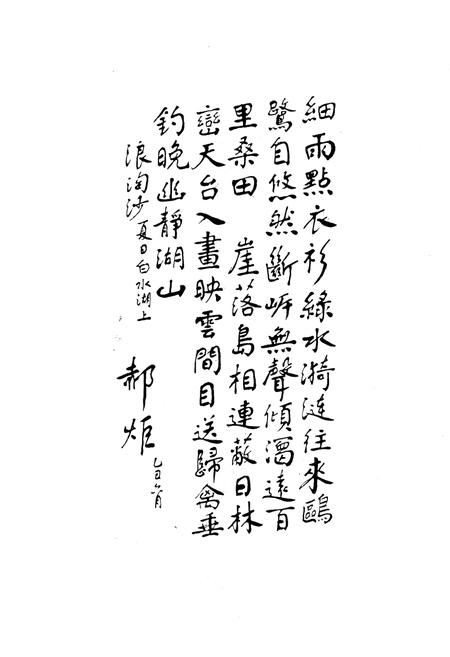 細雨點衣衫綠水漪漣往來鷗
鷺自悠然斷岸無聲傾瀉遠百
里桑田 崖落島相連蔽日林
巒天台入畫映雲間目送歸禽垂
釣晚幽靜湖山
浪淘沙夏日白水湖上
郝炬
乙丑六月